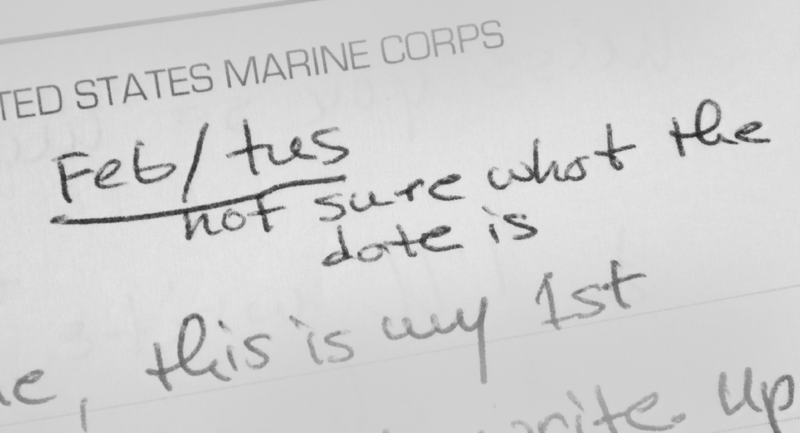 TED STATES MARINE CORPS
Feb/tues
not sure what the
date is
e, this is my 1st
write. Up